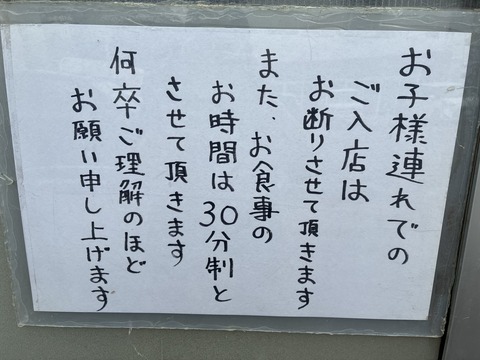 お子様連れでの
ご入店は
お断りさせて頂きます
また、お食事の
お時間は30分制と
させて頂きます
何卒ご理解のほど
お願い申し上げます